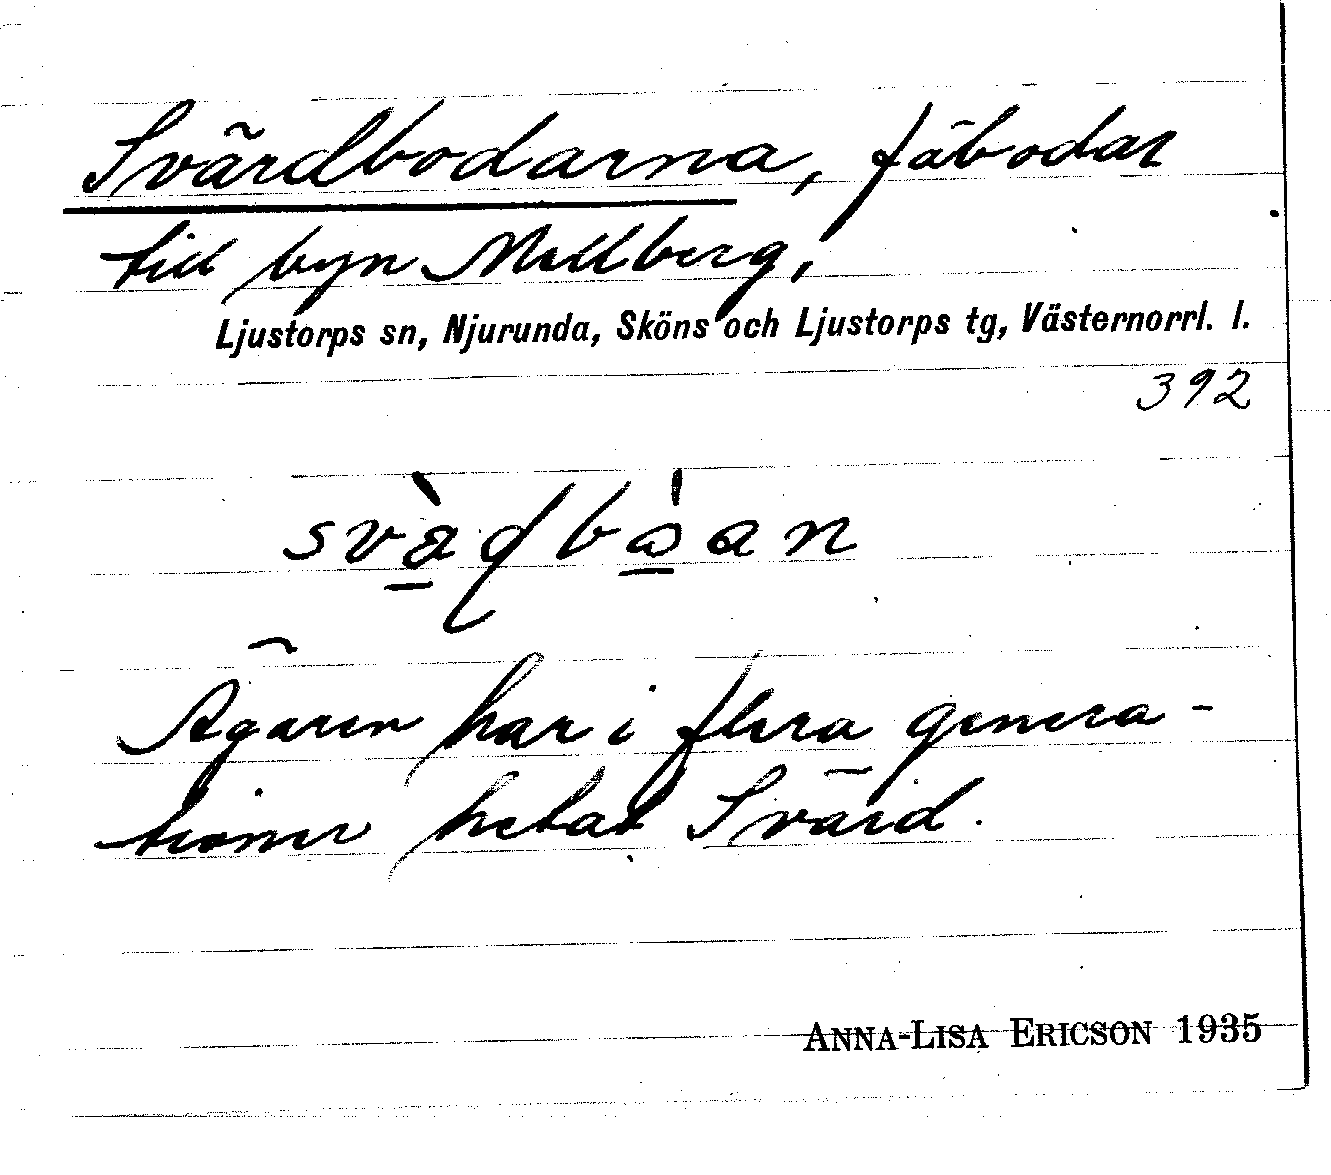 Svärdbodarna, fäbodar
till byn Mellberg,
Ljustorps sn, Njurunda, Sköns och Ljustorps tg, Västernorrl. l.
392
Ägaren har i flera genera-
tioner hetat Svärd.
ANNA-LISA ERICSON 1935